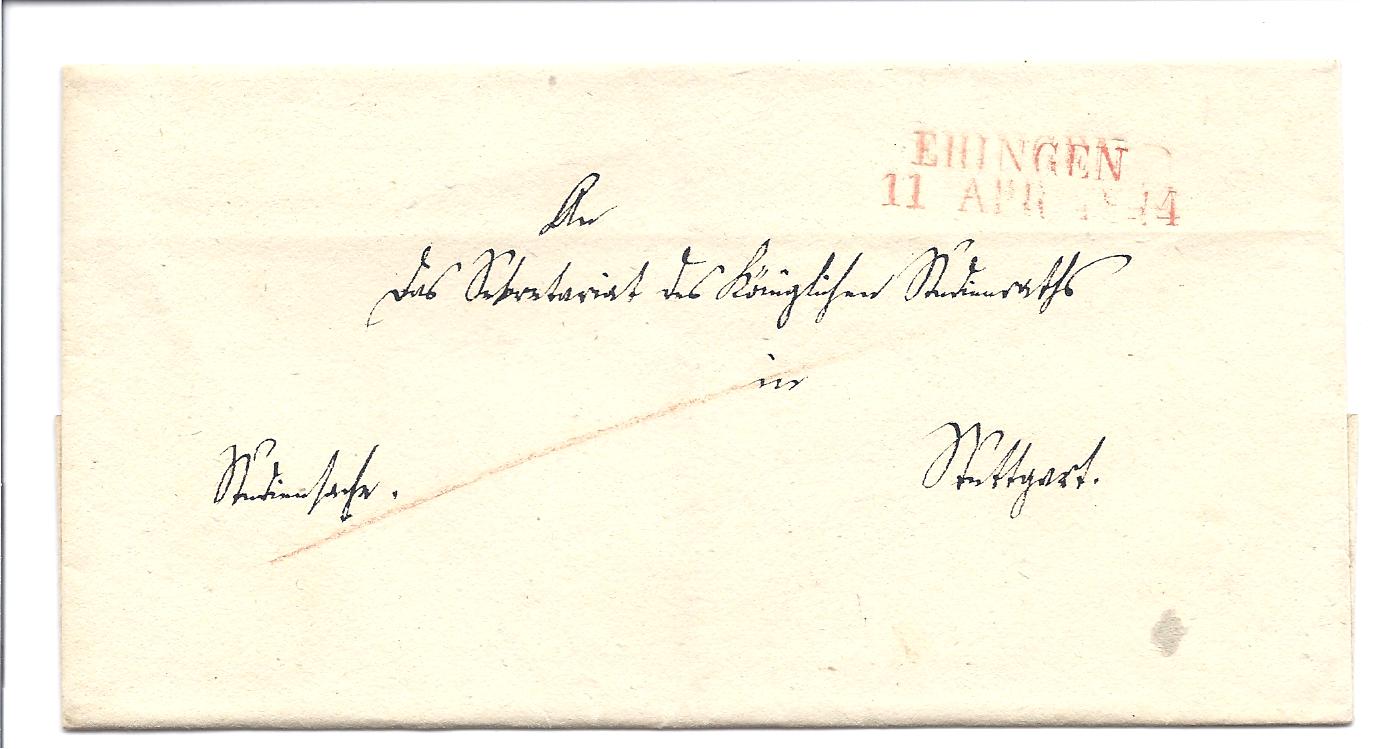 EHINGEN
11 APR 1844
An
das Sekretariat des Königlichen Studienraths
in
Studiensache.
Stuttgart.